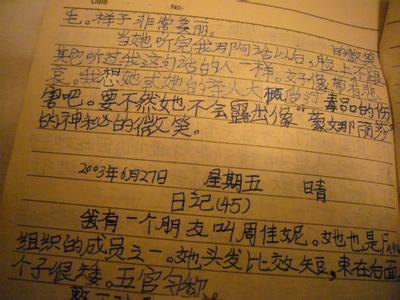 Date No:
毛。样子非常美丽。
当她听完我那句话以后。脸上 的微笑
其他听过我这句话的人一样。好像带有悲
哀。我想她或她的亲人大概受到 毒品的伤
害吧。要不然她不会露出像“蒙文那丽莎”
的神秘的微笑。
2003年6月27日 星期五 晴
日记(45)
我有一个朋友叫周佳妮。她也是
组织的成员之一。她头发比效短，束在后面
个子很矮。五官匀称。